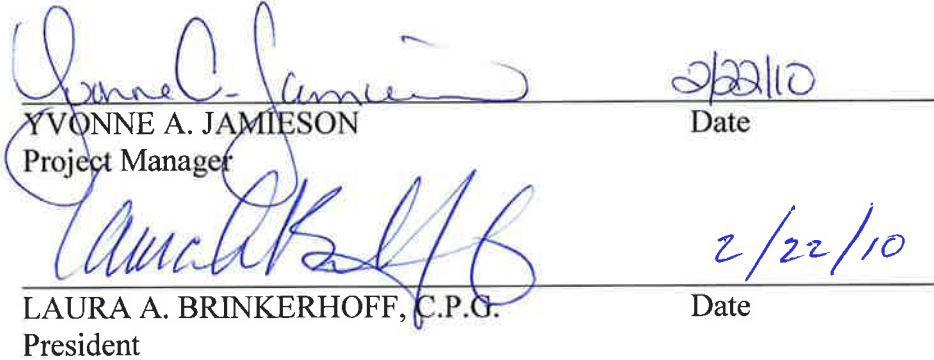 Yvonne A. Jamieson 2/22/10
YVONNE A. JAMIESON Date
Project Manager
Laura A Brinkerhoff 2/22/10
LAURA A. BRINKERHOFF, C.P.G. Date
President